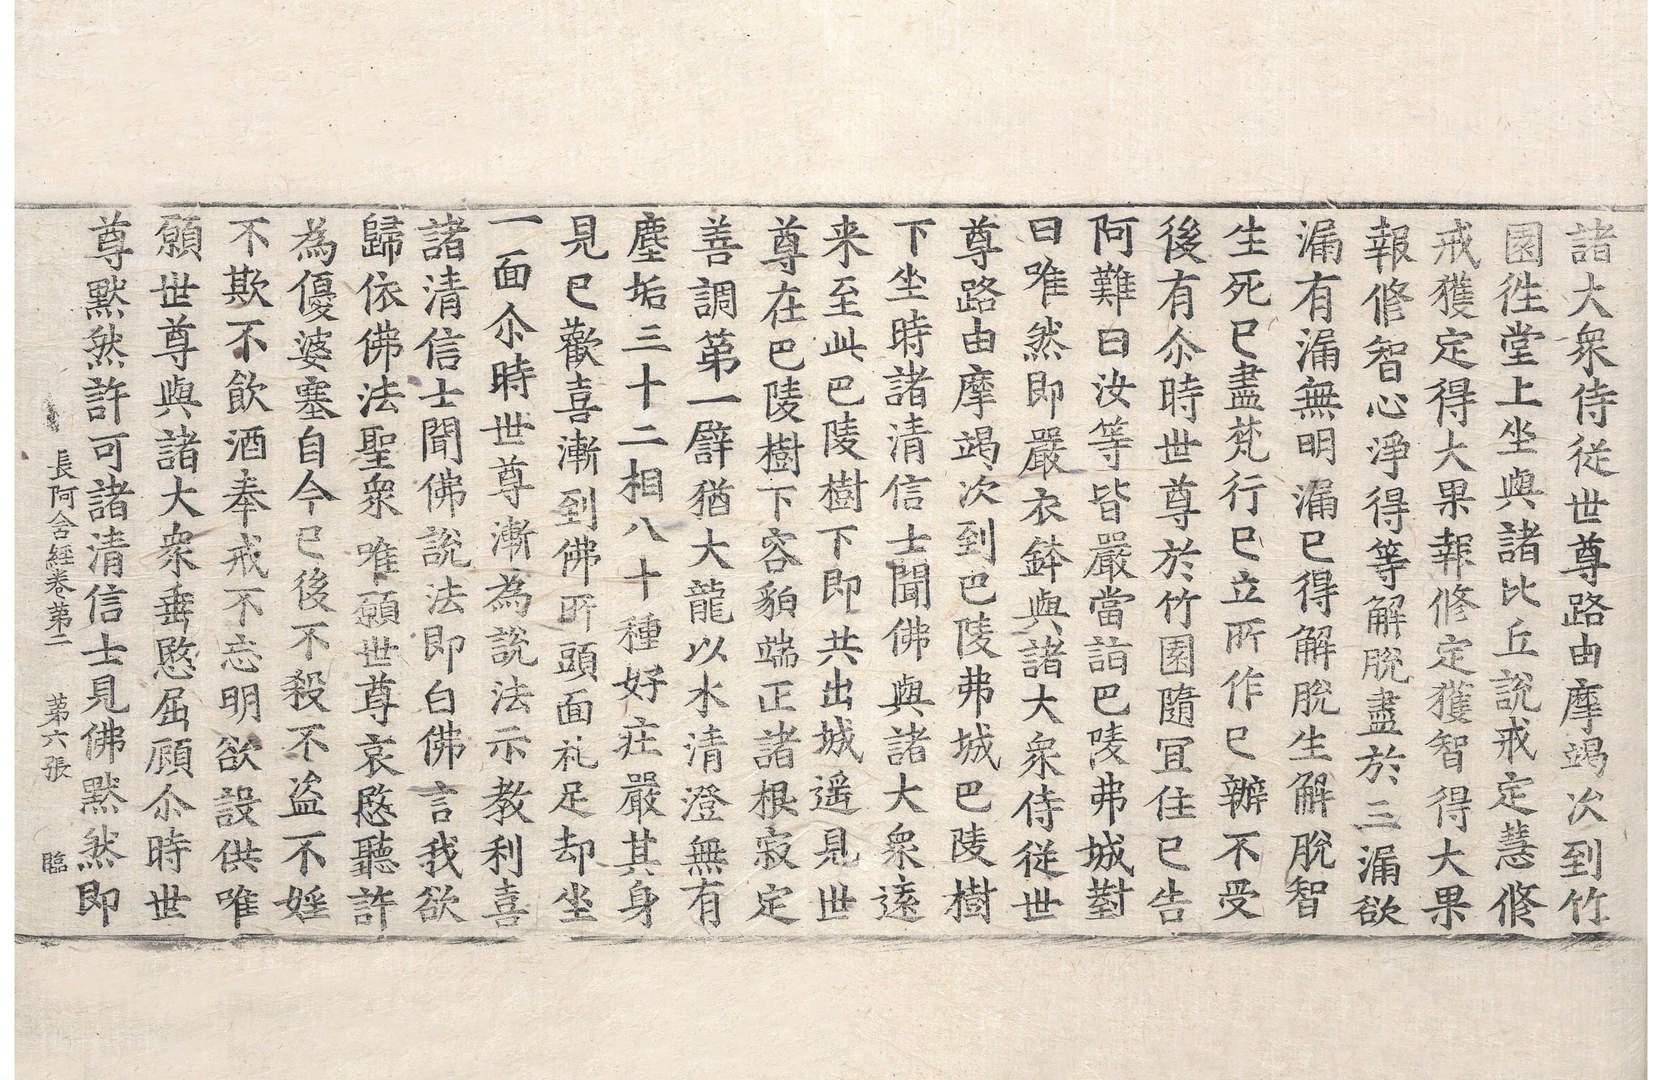 諸大衆侍従世尊路由摩竭次到竹
園徃堂上坐與諸比丘說戒定慧修
戒獲定得大果報修定獲智得大果
報修智心淨得等解脫盡於三漏欲
漏有漏無明漏已得解脫生解脫智
生死已盡梵行已立所作已辦不受
後有尒時世尊於竹園隨冝住已告
阿難曰汝等皆嚴當詣巴陵弗城對
曰唯然即嚴衣鉢與諸大衆侍従世
尊路由摩竭次到巴陵弗城巴陵樹
下坐時諸清信士聞佛與諸大衆遠
来至此巴陵樹下即共出城遥見世
尊在巴陵樹下容貌端正諸根寂定
善調第一譬猶大龍以水清澄無有
塵垢三十二相八十種好庄嚴其身
見已歡喜漸到佛所頭面礼足却坐
一面尒時世尊漸為說法示教利喜
諸清信士聞佛說法即白佛言我欲
歸依佛法聖衆唯願世尊哀愍聽許
為優婆塞自今已後不殺不盗不婬
不欺不飲酒奉戒不忘明欲設供唯
願世尊與諸大衆垂愍屈顧尒時世
尊默然許可諸清信士見佛默然即
長阿含經卷第二 第六張 臨